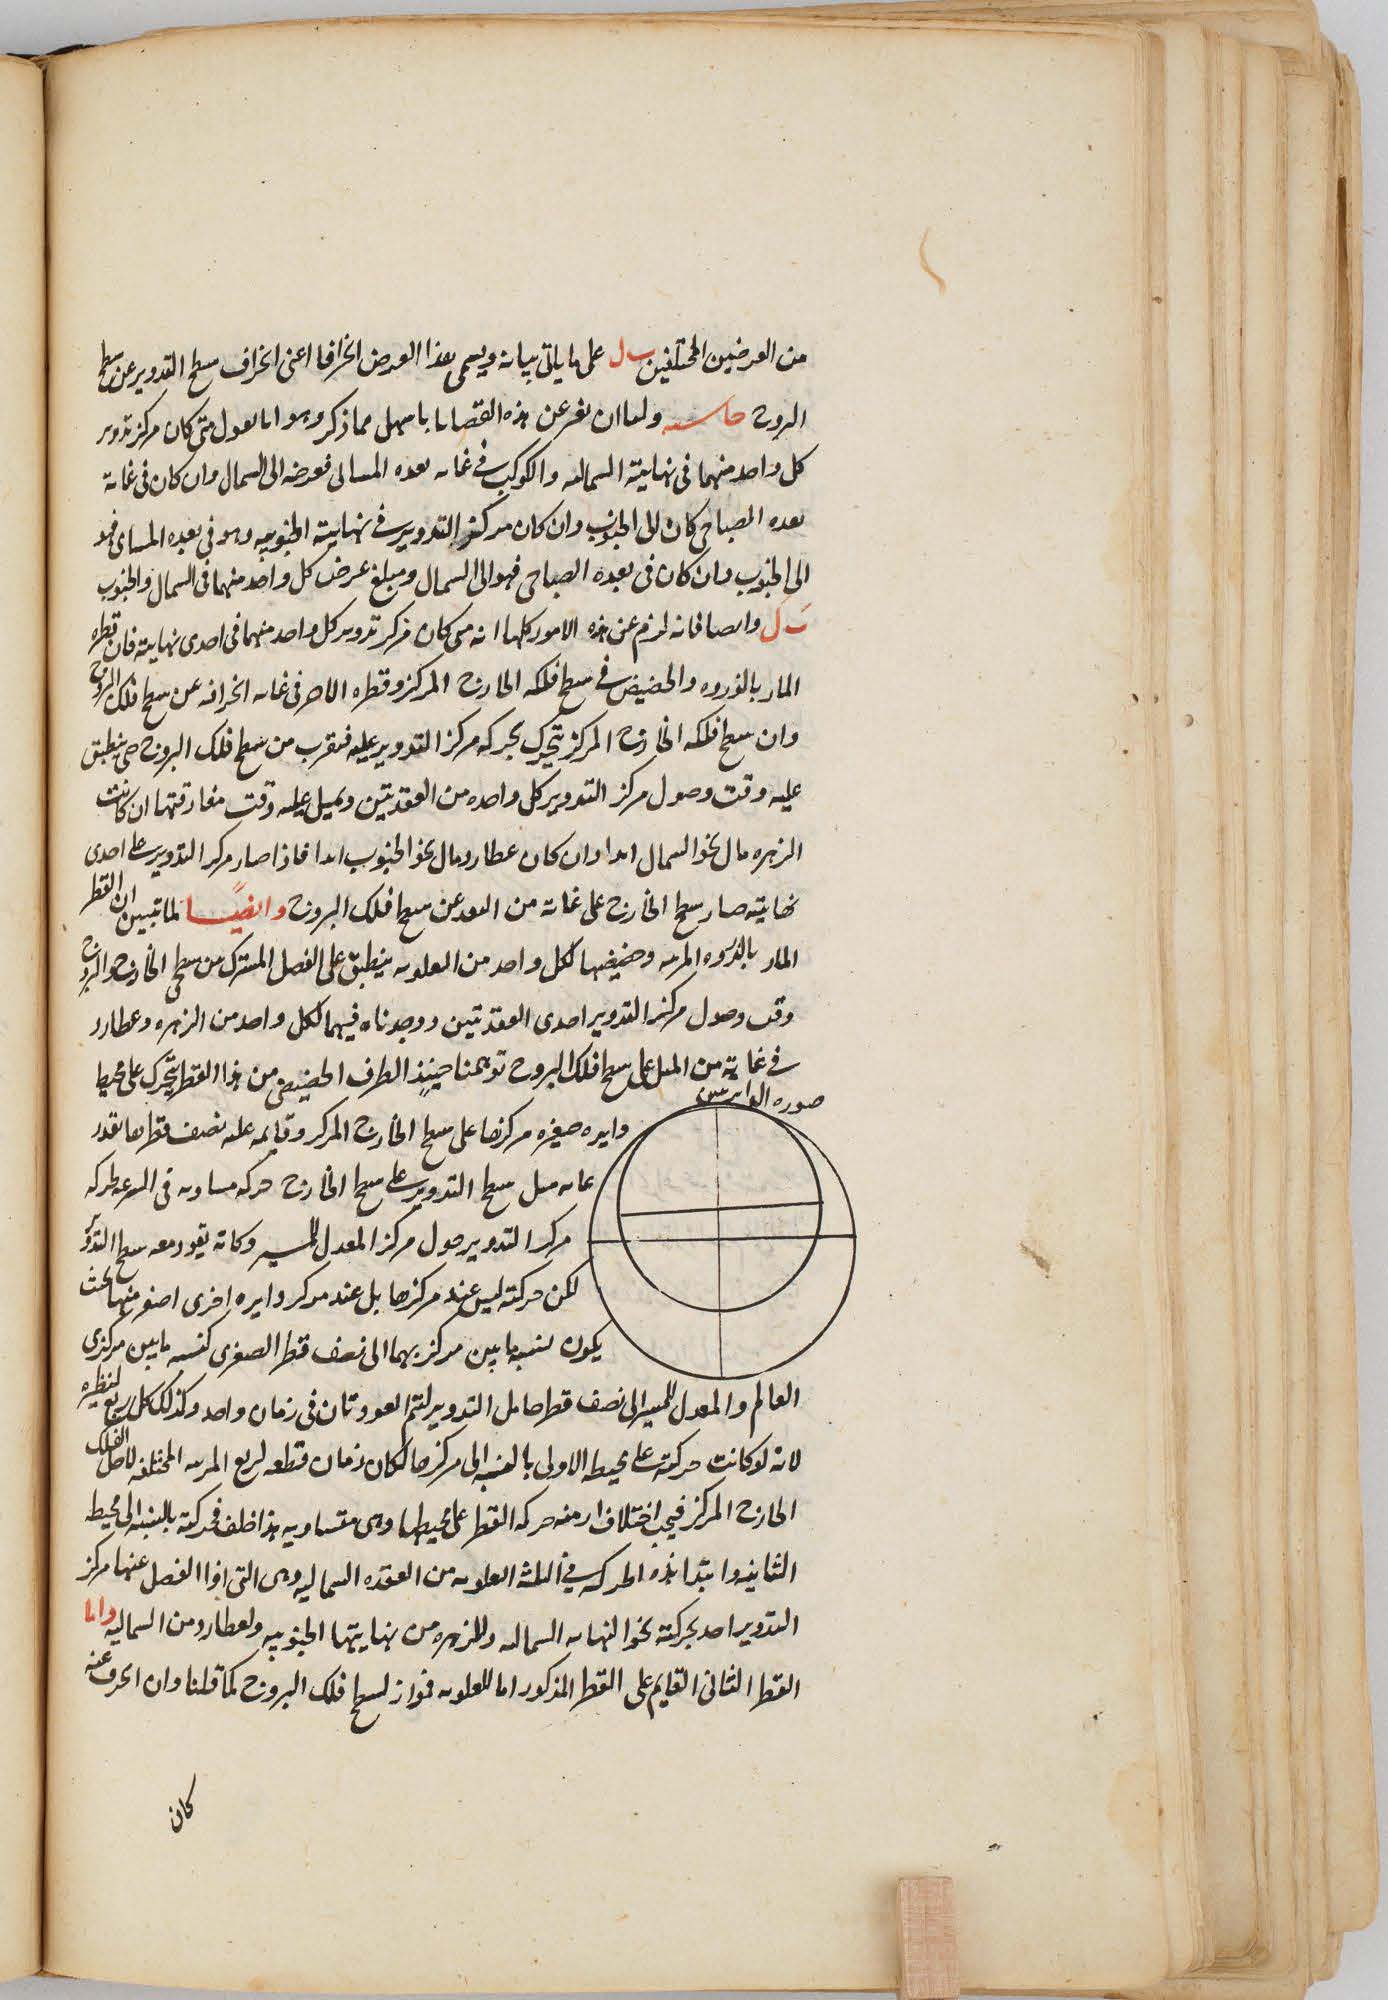 من العرضين المختلفين ب ل على ما ياتى بيانه ويسمى هذا العرض انحرافا اعنى انحراف سطح التدوير عن سطح
البروج حاسه ولنا ان نعبر عن هذه القضايا باسهل مما ذكر وهو انا نقول متى كان مركز تدوير
كل واحد منهما فى نهايته الشمالية والكوكب فى غاية بعده المسائى فعرضه الى الشمال وان كان فى غاية
بعده الصباحى كان الى الجنوب وان كان مركز التدوير فى نهايته الجنوبيه وهو فى بعده المسائى فهو
الى الجنوب وان كان فى بعده الصباحى فهو الى الشمال ومبلغ عرض كل واحد منهما فى الشمال والجنوب
ب ل وايضا فانه لزم عن هذه الامور كلها انه متى كان مركز تدوير كل واحد منهما فى احدى نهايتيه فان قطره
المار بالذروه والحضيض فى سطح فلكه الخارج المركز وقطره الاخر فى غاية انحرافه عن سطح فلك البروج
وان سطح فلكه الخارج المركز يتحرك بحركه مركز التدوير عليه فيقرب من سطح فلك البروج حتى ينطبق
عليه وقت وصول مركز التدوير كل واحده من العقدتين ويميل عليه وقت مفارقتها ان كانت
الزهره مال نحو الشمال ابدا وان كان عطارد مال نحو الجنوب ابدا فاذا صار مركز التدوير على احدى
نهايتيه صار سطح الخارج على غاية من البعد عن سطح فلك البروج وايضًا لما تبين ان القطر
المار بالذروه المرئيه وحضيضها لكل واحد من العلويه ينطبق على الفصل المشترك من سطحى الخارج والبروج
وقت وصول مركز التدوير احدى العقدتين ووجدناه فيهما لكل واحد من الزهره وعطارد
فى غاية من الميل على سطح فلك البروج توهمنا حينئذ الطرف الحضيضى من هذا القطر يتحرك على محيط
صوره الدايرتين
دايره صغيره مركزها على سطح الخارج المركز وقايمه عليه نصف قطرها بقدر
غايه ميل سطح التدوير على سطح الخارج حركه مساويه فى السرعه لحركه
مركز التدوير حول مركز المعدل للمسير وكانه يقود معه سطح التدوير
لكن حركته ليس عند مركزها بل عند مركز دايره اخرى اصغر منها بحيث
يكون نسبه ما بين مركزيهما الى نصف قطر الصغرى كنسبه ما بين مركزى
العالم والمعدل للمسير الى نصف قطر حامل التدوير لتتم العودتان فى زمان واحد وكذلك كل ربع لنظيره
لانه لو كانت حركته على محيط الاولى بالنسبه الى مركزها لكان زمان قطعه لربع المرئيه المختلفه لاجل الفلك
الخارج المركز فيجب اختلاف ازمنه حركه القطر على محيطها وهى متساويه هذا خلف فحركته بالنسبه الى محيط
الثانيه وابتدا هذه الحركه فى الثلثه العلويه من العقده الشماليه وهى التى اذا انفصل عنها مركز
التدوير اخذ بحركته نحو النهايه الشماليه وللزهره من نهايتها الجنوبيه ولعطارد من الشماليه واما
القطر الثانى القايم على القطر المذكور اما للعلويه فمواز لسطح فلك البروج كما قلنا وان انحرف عنه
كان